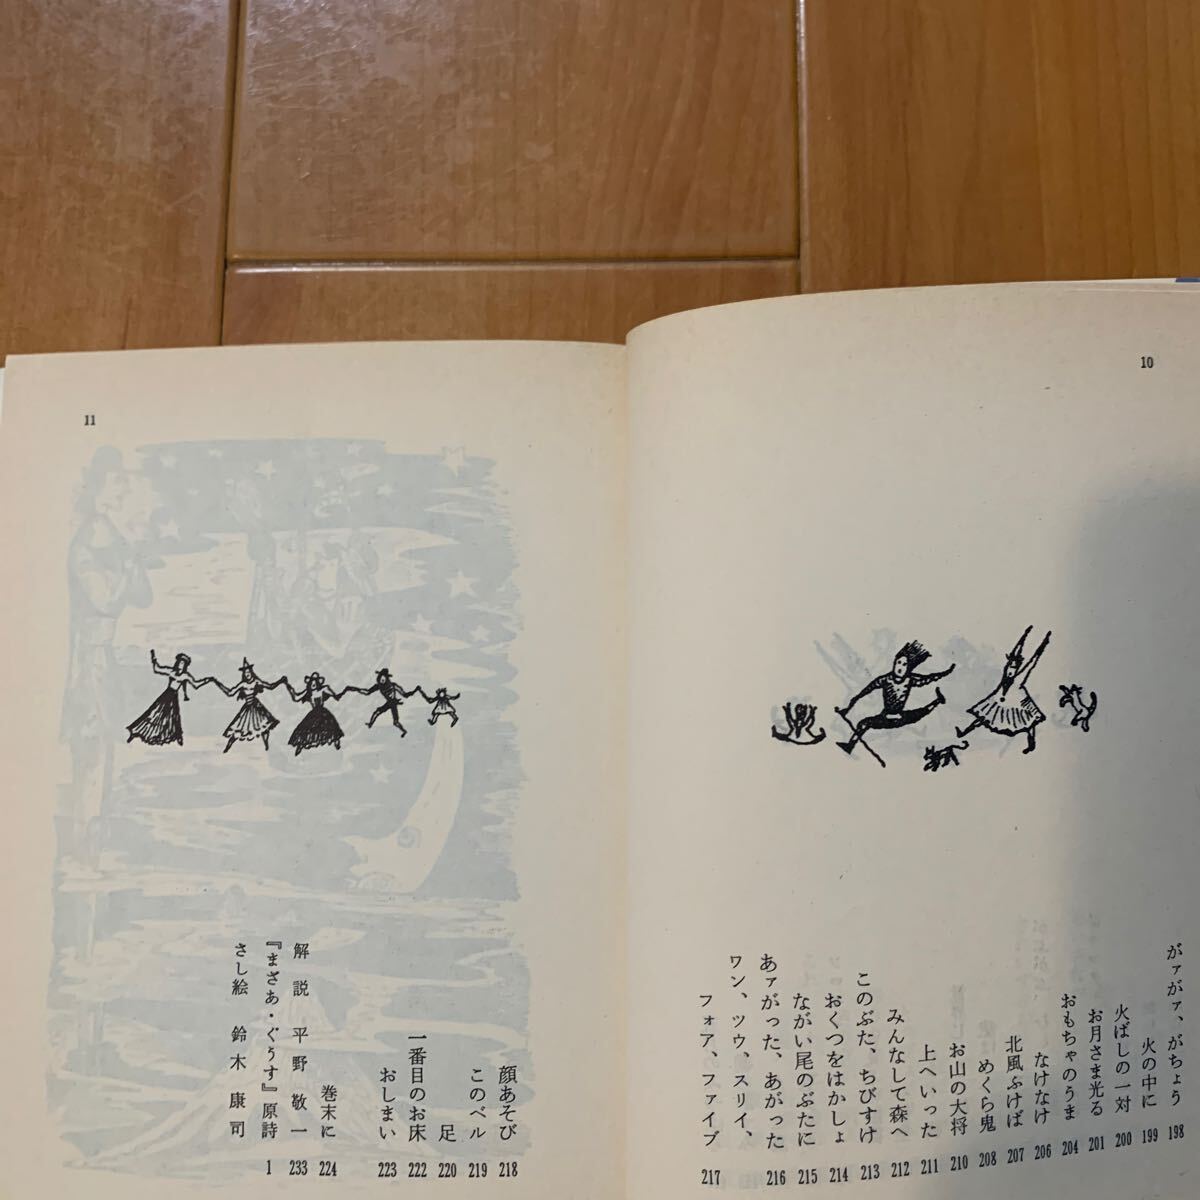 10
がァがァ、がちょう 198
火の中に 199
火ばしの一対 200
お月さま光る 201
おもちゃのうま 204
なけなけ 206
北風ふけば 207
めくら鬼 208
お山の大将 210
上へいった 211
みんなして森へ 212
このぶた、ちびすけ 213
おくつをはかしょ 214
ながい尾のぶたに 215
あァがった、あがった 216
ワン、ツウ、スリイ、
フォア、ファイブ 217
11
顔あそび 218
このベル 219
足 220
一番目のお床 222
おしまい 223
巻末に 224
解説 平野敬一 233
『まざあ・ぐうす』原詩 1
さし絵 鈴木康司